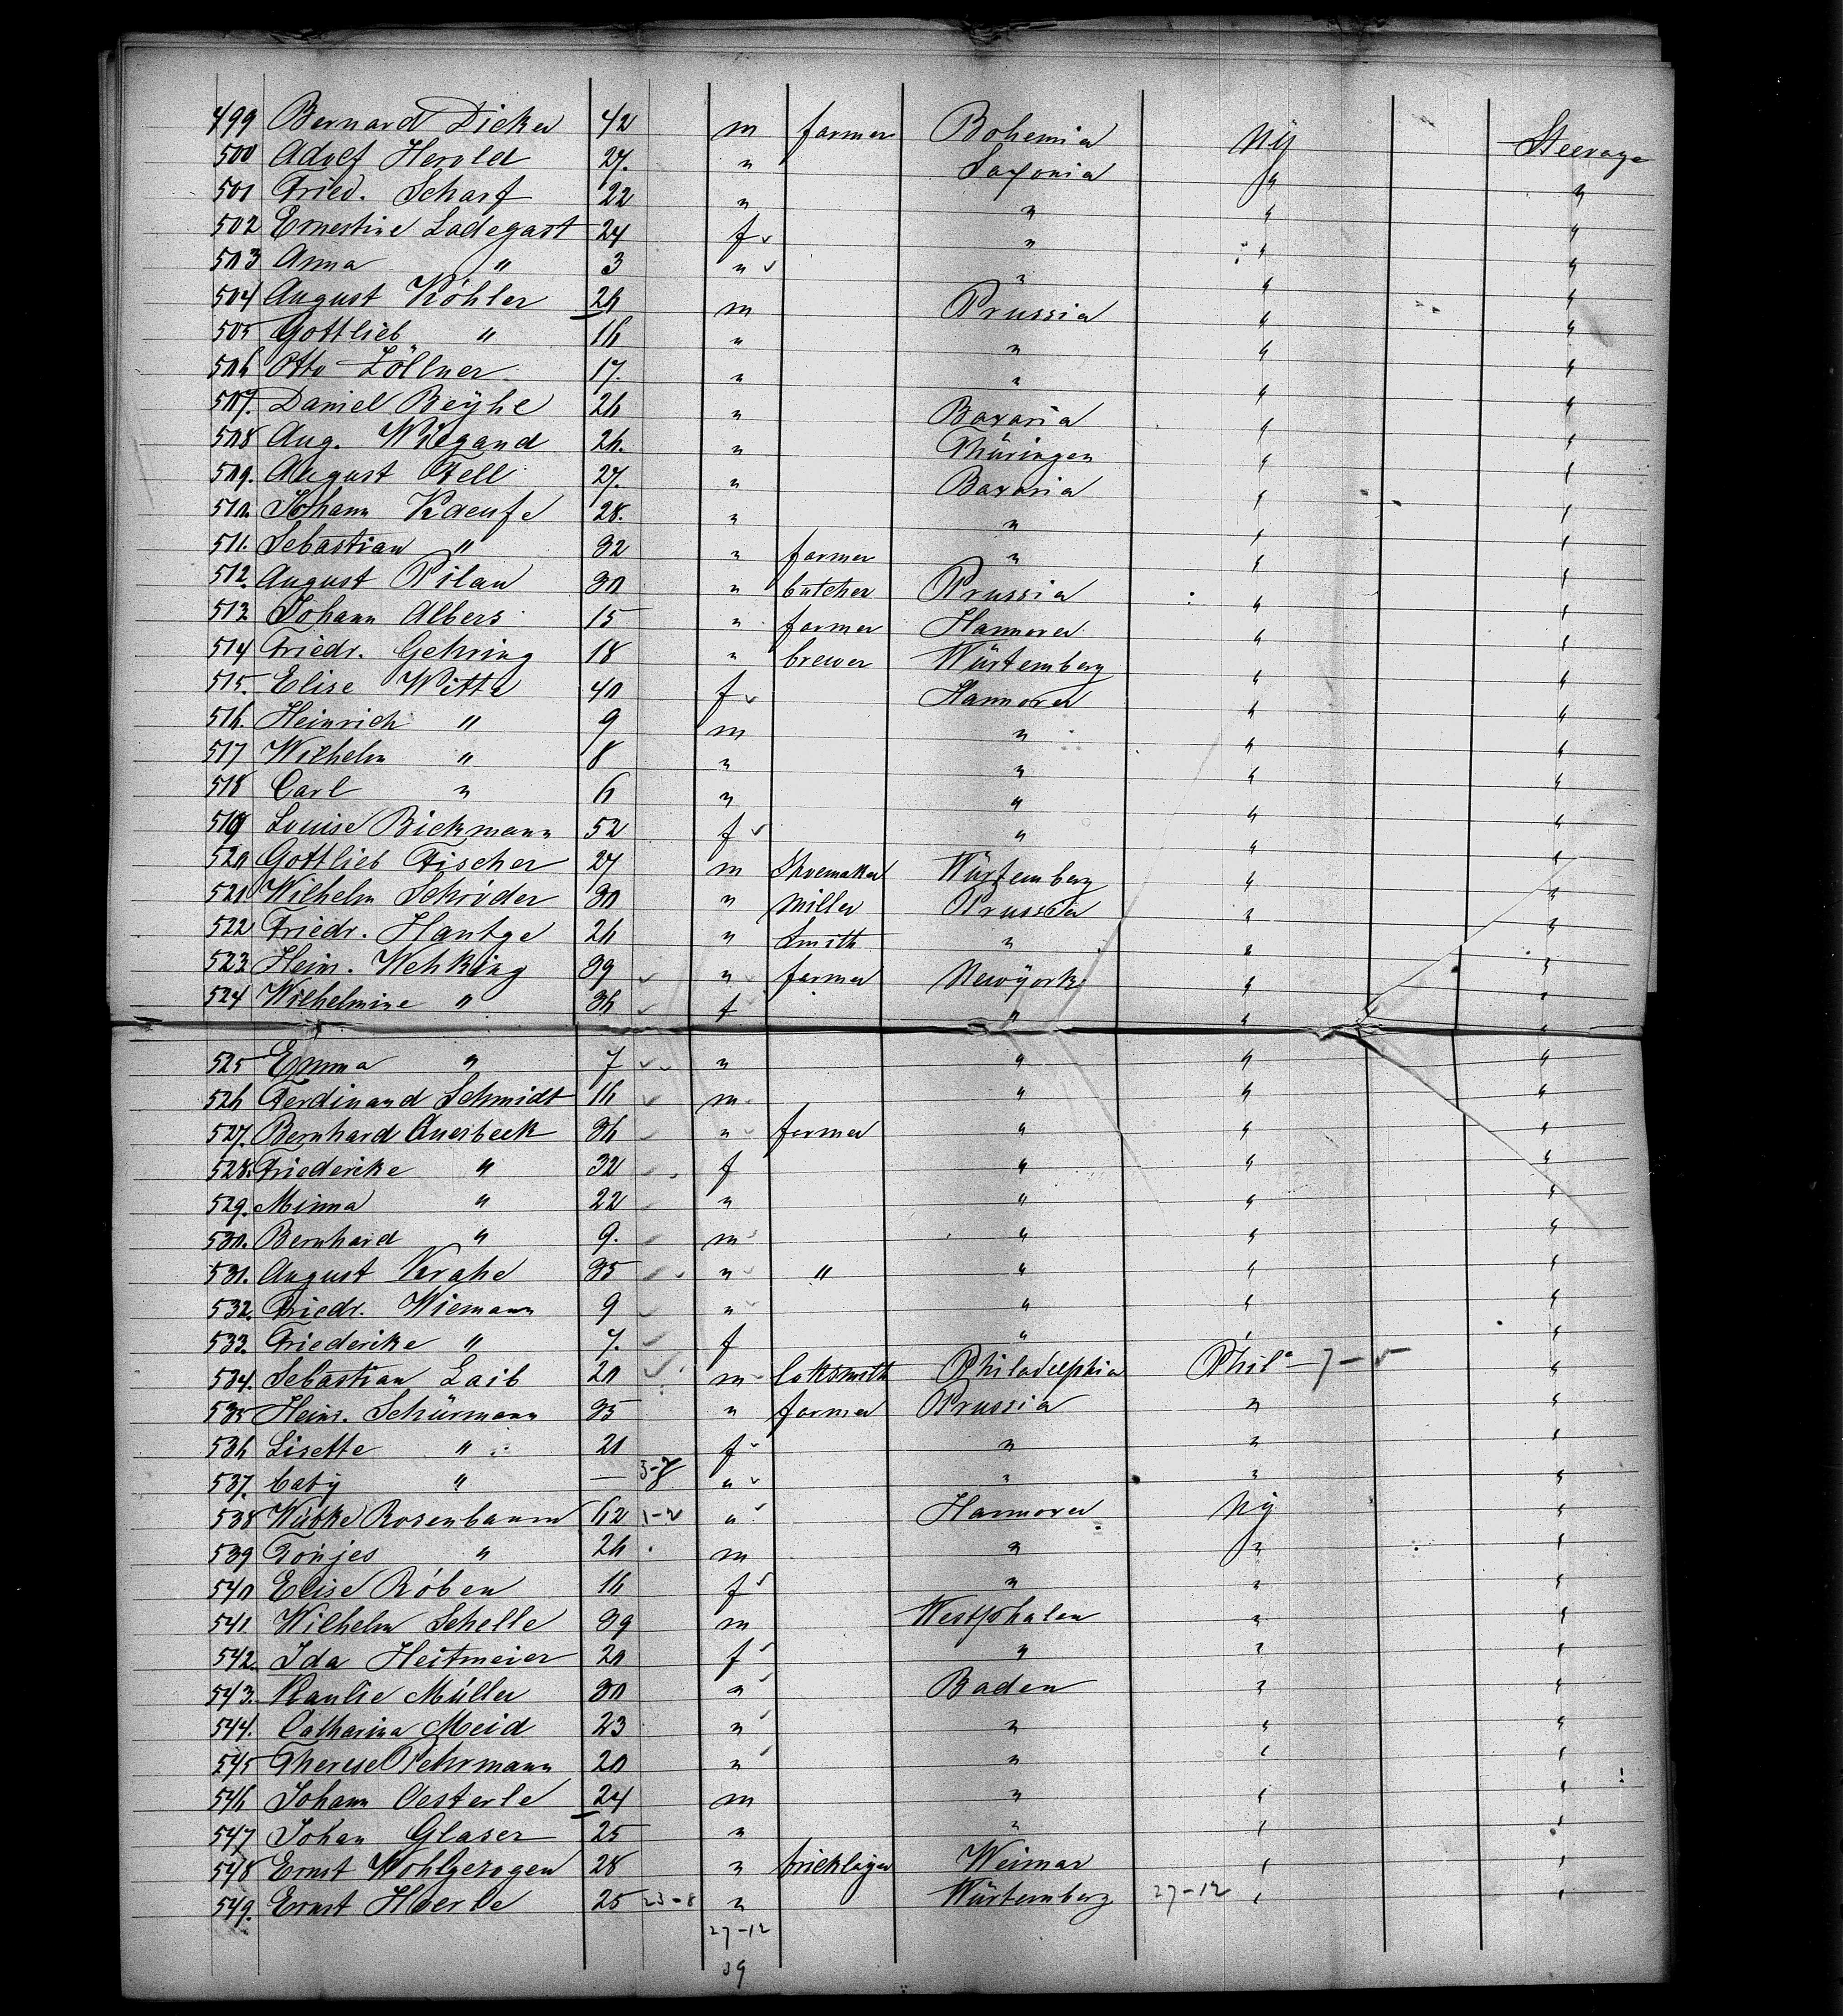 499 Bernard Dicker 42 m farmer Bohemia NY Steerage
500 Adolf Herold 27. " Saxonia " "
501 Fried. Scharf 22 " " " "
502 Ernestine Ladegast 24 f " " "
503 Anna " 3 " " " "
504 August Köhler 26 m Prussia " "
505 Gottlieb " 16 " " " "
506 Otto Zöllner 17. " " " "
507. Daniel Beyhl 26 " Bavaria " "
508 Aug. Wiegand 26. " Thüringen " "
509. August Fell 27. " Bavaria " "
510. Johann Kaeufe 28. " " " "
511. Sebastian " 32 " farmer " " "
512. August Pilau 30 " butcher Prussia " "
513 Johann Albers 15 " farmer Hannover " "
514 Friedr. Gehring 18 " brewer Würtemberg " "
515. Elise Witte 40 f Hannover " "
516. Heinrich " 9 m " " "
517 Wilhelm " 8 " " " "
518 Carl " 6 " " " "
519 Louise Bickmann 52 f " " "
520 Gottlieb Fischer 27 m Shoemaker Würtemberg " "
521. Wilhelm Schröder 30 " Miller Prussia " "
522 Friedr. Hantge 26 " Smith " " "
523 Heinr. Wehking 39 " farmer Newyork " "
524 Wilhelmine " 36 f " " "
525 Emma " 7 " " " "
526 Ferdinand Schmidt 16 m " " "
527. Bernhard Auerbeck 36 " farmer " " "
528. Friederike " 32 f " " "
529. Minna " 22 " " " "
530. Bernhard " 9. m " " "
531. August Krahe 35 " " " " "
532. Friedr. Wiemann 9 " " " "
533. Friederike " 7. f " " "
534. Sebastian Laib 20 m Philadelphia Phila 7-5 "
535 Heinr. Schürmann 35 " farmer Prussia " "
536 Lisette " 21 f " " "
537. baby " — 3-8 " " " "
538 Wübke Rosenbaum 62 1-2 " Hannover NY "
539 Tönjes " 26 m " " "
540 Elise Röben 16 f " " "
541. Wilhelm Schelle 39 m Westphalen " "
542. Ida Heitmeier 20 f " " "
543. Müller 30 " Baden " "
544. Catharina Meid 23 " " " "
545 Therese Fehrmann 20 " " " "
546 Johann Oesterle 24 m " " "
547 Johan Glaser 25 " " " "
548 Ernst Wohlgezogen 28 " bricklayer Weimar " "
549. Ernst Hoerle 25 23-8 " Würtemberg 27-12 " "
27-12
39